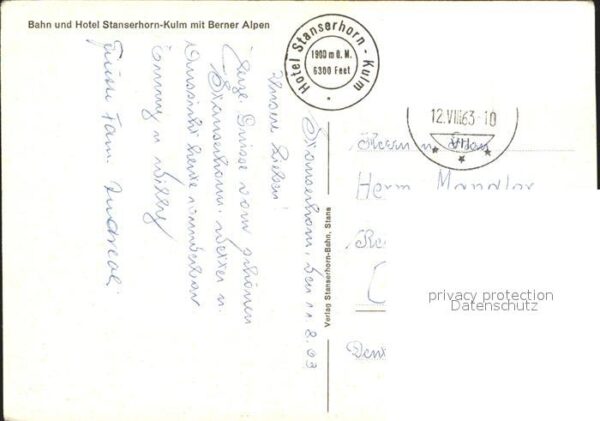 Bahn und Hotel Stanserhorn-Kulm mit Berner Alpen
Hotel Stanserhorn - Kulm
1900 m ü. M.
6300 Feet
12.VIII.63-10
Stanserhorn, den 11.8.63
Unsere Lieben!
vom schönen
Stanserhorn. Wetter u.
heute wunderbar
Emmy u Willy
Fam.
Verlag Stanserhorn-Bahn, Stans
Herrn u. Frau
Herm
privacy protection
Datenschutz